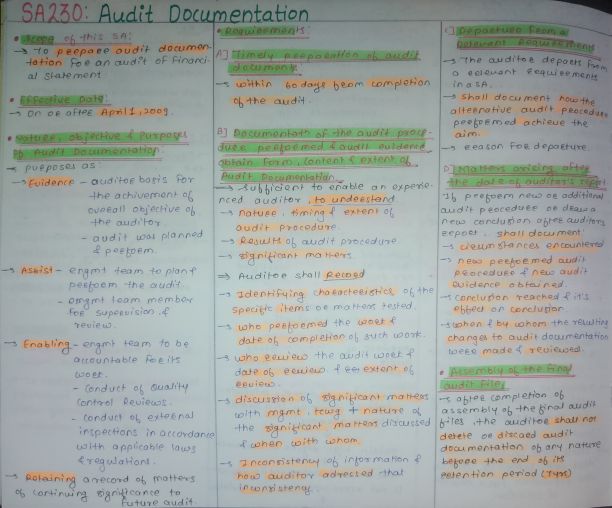 SA230: Audit Documentation
• Scope of this SA:
→ To prepare audit documen-
tation for an audit of financi-
al statement
• Effective Date:
→ On or after April 1, 2009.
• Nature, Objective & Purposes
of Audit Documentation.
→ purposes as:
→ Evidence - auditor basis for
the achivement of
overall objective of
the auditor
- audit was planned
& perform.
→ Assist - engmt team to plan &
perform the audit.
- engmt team member
for supervision &
review.
→ Enabling - engmt team to be
accountable for its
work.
- Conduct of Quality
Control Reviews.
- conduct of external
inspections in accordance
with applicable laws
& regulations.
→ Retaining a record of matters
of continuing significance to
future audit.
• Requirements:
A] Timely preparation of audit
document:
→ within 60 days from completion
of the audit.
B] Documentatn of the audit proce-
dure performed & audit evidence
obtain form, content & extent of
Audit Documentation.
→ Sufficient to enable an experie-
nced auditor, to understand
→ nature, timing & extent of
audit procedure.
→ Results of audit procedure
→ significant matters.
⇒ Auditor shall Record
→ Identifying characteristics of the
specific items or matters tested.
→ who performed the work &
date of completion of such work.
→ who review the audit work &
date of review & extent of
review.
→ discussion of significant matters
with mgmt, tcwg + nature of
the significant matters discussed
& when with whom.
→ Inconsistency of information &
how auditor adressed that
inconsistency.
C] Departure from a
Relevant Requirements
→ The auditor departs from
a relevant requirements
in a SA..
→ Shall document how the
alternative audit procedure
performed achieve the
aim.
→ reason for departure.
D] Matters arising after
the date of auditor's report
If perform new or additional
audit procedure or draw a
new conclusion after auditors
report, shall document:
→ circumstances encountered
→ new performed audit
procedure & new audit
evidence obtained.
→ conclusion reached & it's
effect on conclusion
→ when & by whom the resulting
changes to audit documentation
were made & reviewed.
• Assembly of the final
audit file
→ after completion of
assembly of the final audit
files, the auditor shall not
delete or discard audit
documentation of any nature
before the end of its
retention period (7yrs)